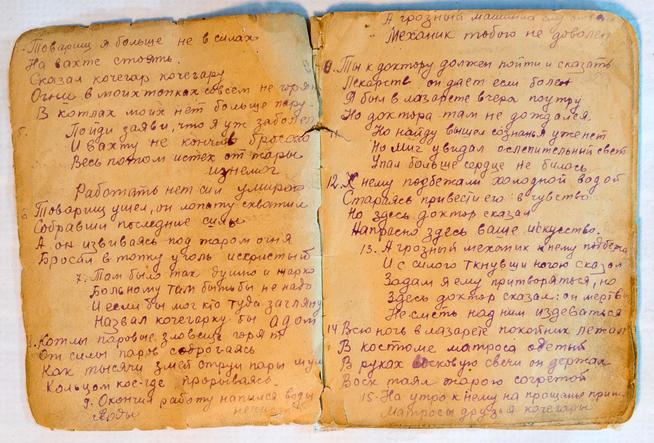 Товарищ я больше не в силах
На вахте стоять.
Сказал кочегар кочегару
Огни в моих топках совсем не горя
В котлах моих нет больше пару
5. Пойди заяви, что я уж заболел
И вахту не кончив бросаю
Весь потом истек от жары
изнемог
Работать нет сил умираю
6. Товарищ ушел, он лопату схватил
Собравши последние силы
А он извиваясь под жаром огня
Бросал в топку уголь искристый
7. Там было так душно и жарко
Больному там быть бы не надо
И если бы мог кто туда заглянуть
Назвал кочегарку бы Адом
Котлы паровые зловеще горят
От силы паров содрогаясь
Как тысячи змей струи пары шум
Кольцом кое-где прорываясь.
9. Окончил работу напился воды
Воды
А грозный машины
Механик тобою не доволен
Ты к доктору должен пойти и сказать
Лекарств он даст если болен
Я был в лазарете вчера поутру
Но доктора там не дождался.
На палубу вышел сознанья уж нет
Но миг увидал ослепительный свет
Упал больше сердце не билось
12. К нему подбежали холодной водой
Стараясь привести его в чувство
Но здесь доктор сказал
Напрасно здесь ваше искусство.
13. А грозный механик к нему подбежа
И с силою ткнувши ногою сказал
Задам я ему притворяться, но
Здесь доктор сказал: он мертвы
Не сметь над ним издеваться
14 Всю ночь в лазарете покойник лежал
В костюме матроса одетый
В руках восковую свечи он держал
Воск таял жарою согретой
15. На утро к нему на прощанье при
Матросы друзья кочегары